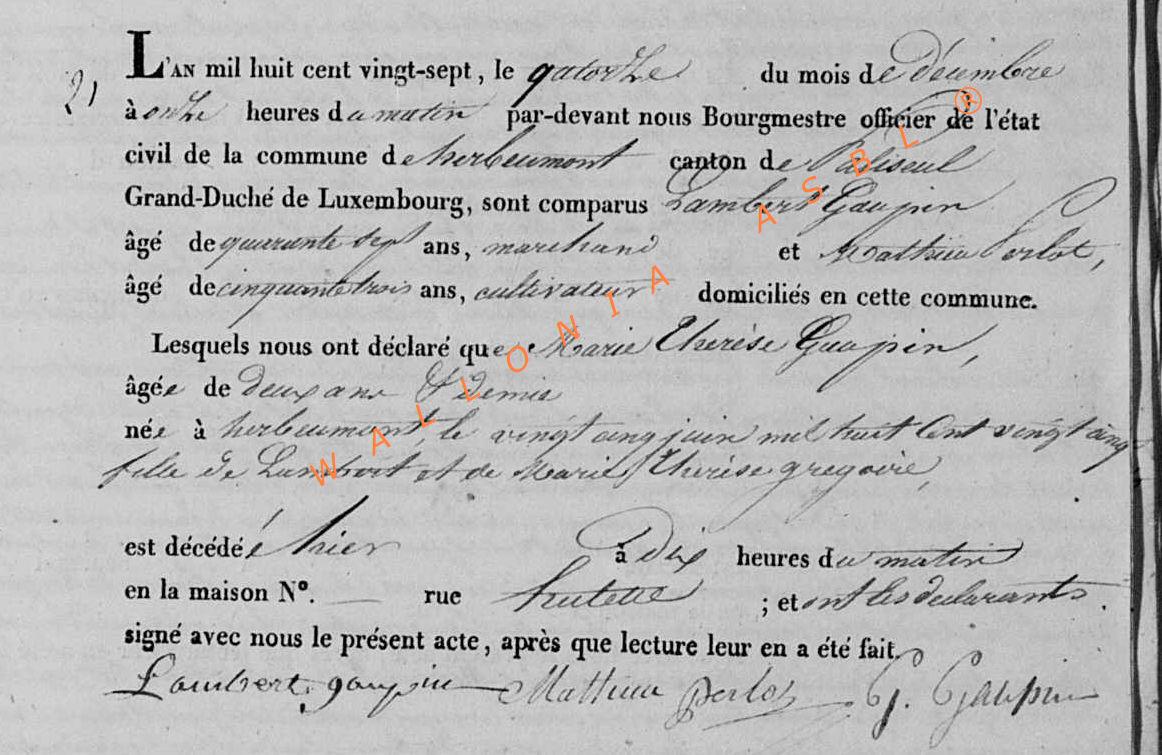 21
L'AN mil huit cent vingt-sept, le quatorze du mois de décembre
à onze heures du matin par-devant nous Bourgmestre officier de l'état
civil de la commune de herbeumont canton de Paliseul
Grand-Duché de Luxembourg, sont comparus Lambert Gaupin
âgé de quarante sept ans, marchand et Mathieu Perlot,
âgé de cinquante trois ans, cultivateur domiciliés en cette commune.
Lesquels nous ont déclaré que Marie Thérèse Gaupin,
âgée de deux ans & demie
née à herbeumont, le vingt cinq juin mil huit cent vingt cinq
fille de Lambert et de Marie Thérèse gregoire
est décédée hier à dix heures du matin
en la maison N°. rue hutette ; et ont les declarants
signé avec nous le présent acte, après que lecture leur en a été fait.
Lambert gaupin Mathieu perlot G. Gaupin
WALLONIA ASBL ®